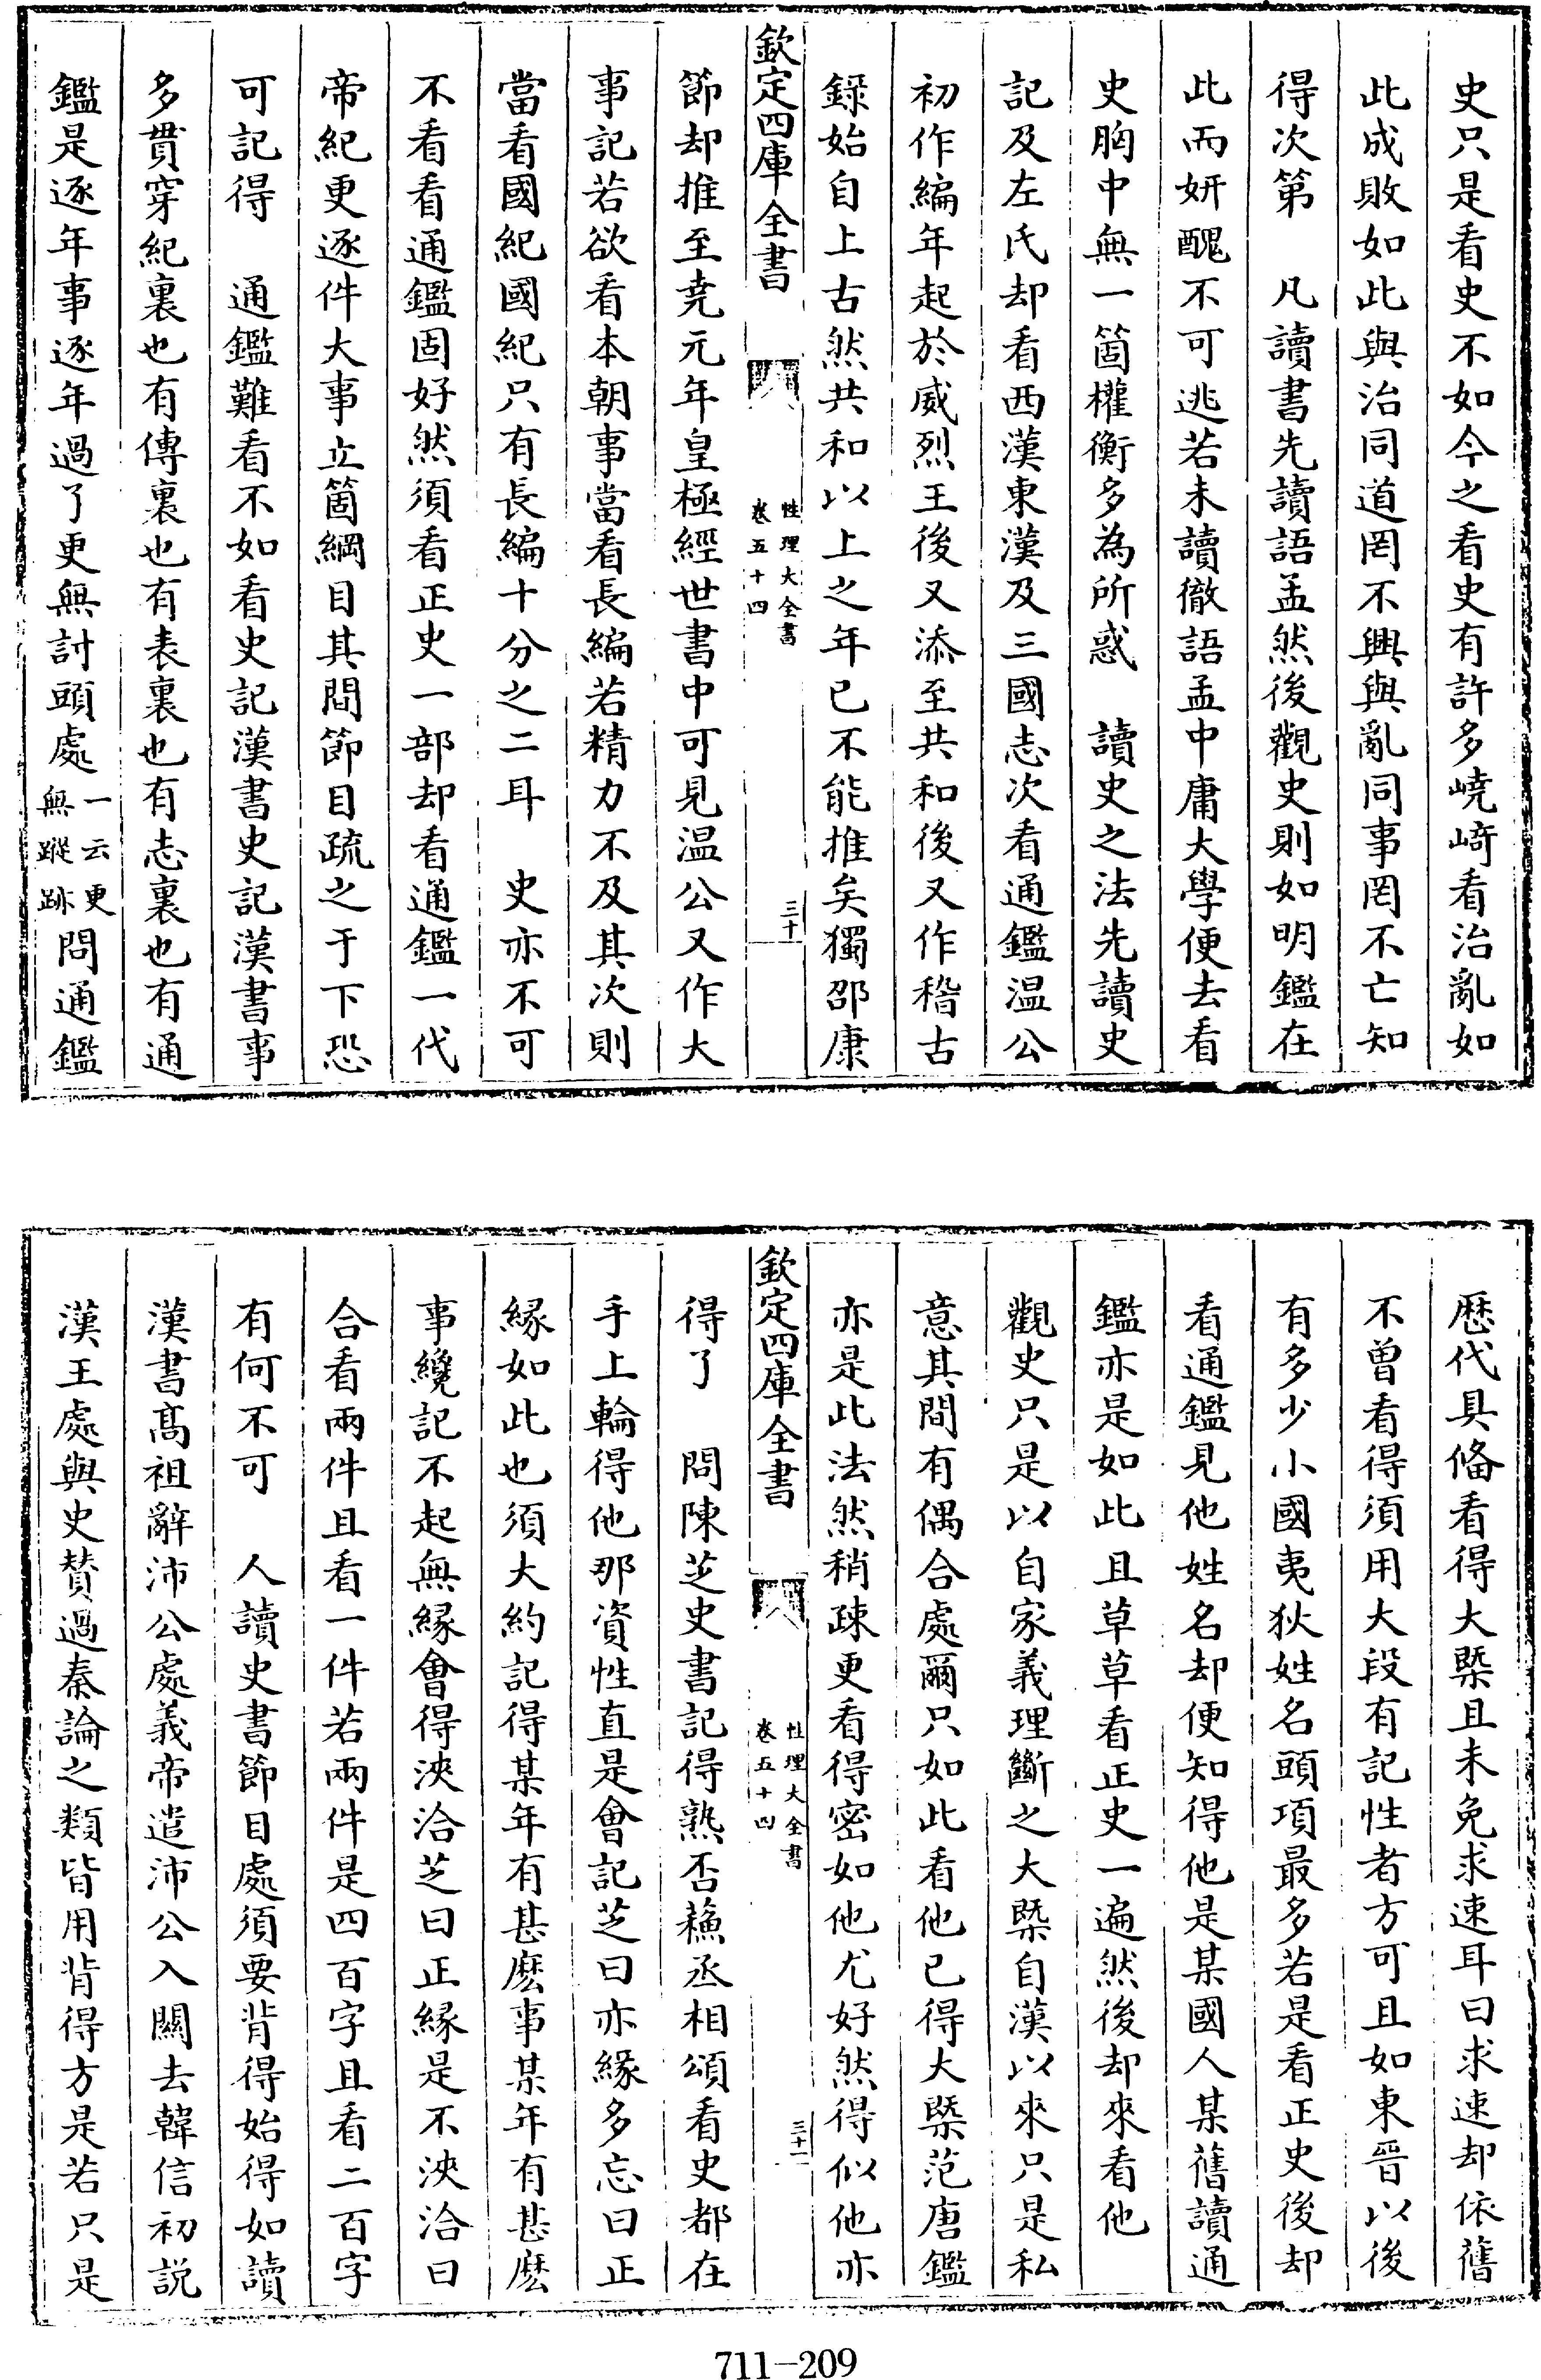 史只是看史不如今之看史有許多嶢﨑看治亂如
此成敗如此與治同道罔不興與亂同事罔不亡知
得次第　凡讀書先讀語孟然後觀史則如明鑑在
此而妍醜不可逃若未讀徹語孟中庸大學便去看
史胸中無一箇權衡多為所惑　讀史之法先讀史
記及左氏却看西漢東漢及三國志次看通鑑温公
初作編年起於威烈王後又添至共和後又作稽古
錄始自上古然共和以上之年已不能推矣獨邵康
欽定四庫全書
性理大全書
卷五十四
三十
節却推至堯元年皇極經世書中可見温公又作大
事記若欲看本朝事當看長編若精力不及其次則
當看國紀國紀只有長編十分之二耳　史亦不可
不看看通鑑固好然須看正史一部却看通鑑一代
帝紀更逐件大事立箇綱目其間節目疏之于下恐
可記得　通鑑難看不如看史記漢書史記漢書事
多貫穿紀裏也有傳裏也有表裏也有志裏也有通
鑑是逐年事逐年過了更無討頭處一云更無蹤跡問通鑑
歷代具偹看得大槩且未免求速耳曰求速却依舊
不曾看得須用大段有記性者方可且如東晉以後
有多少小國夷狄姓名頭項最多若是看正史後却
看通鑑見他姓名却便知得他是某國人某舊讀通
鑑亦是如此且草草看正史一遍然後却來看他
觀史只是以自家義理斷之大槩自漢以來只是私
意其間有偶合處爾只如此看他已得大槩范唐鑑
亦是此法然稍疎更看得密如他尤好然得似他亦
欽定四庫全書
性理大全書
卷五十四
三十一
得了　問陳芝史書記得熟否蘇丞相頌看史都在
手上輪得他那資性直是會記芝曰亦緣多忘曰正
緣如此也須大約記得某年有甚麽事某年有甚麽
事纔記不起無緣會得浹洽芝曰正緣是不浹洽曰
合看兩件且看一件若兩件是四百字且看二百字
有何不可　人讀史書節目處須要背得始得如讀
漢書髙祖辭沛公處義帝遣沛公入關去韓信初説
漢王處與史贊過秦論之類皆用背得方是若只是
711-209